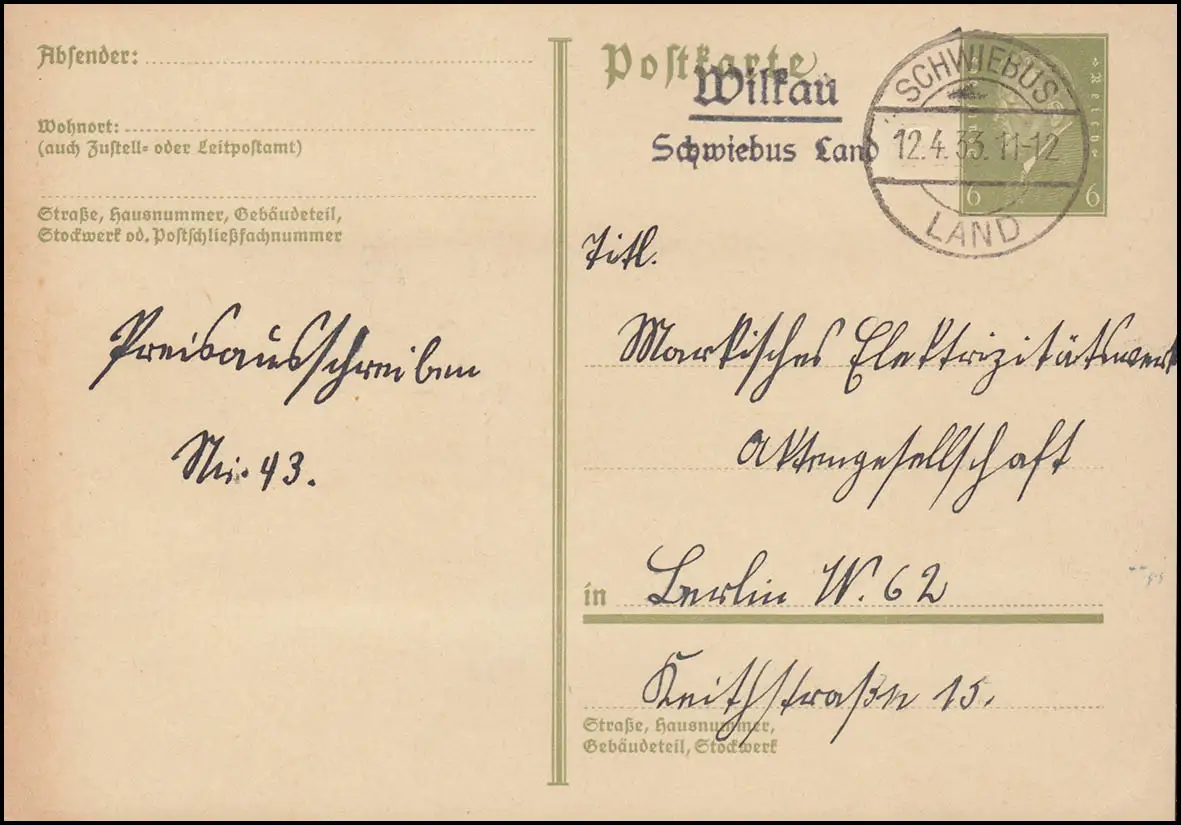 Absender:
Wohnort:
(auch Zustell- oder Leitpostamt)
Straße, Hausnummer, Gebäudeteil,
Stockwerk od. Postschließfachnummer
Preisausschreiben
Nr. 43.
Postkarte
Wilkau
Schwiebus Land
SCHWIEBUS
12.4.33.11-12
LAND
6 6
Titl.
Markisches Elektrizitätswerk
Aktengesellschaft
in Berlin W. 62
Keithstraße 15.
Straße, Hausnummer,
Gebäudeteil, Stockwerk